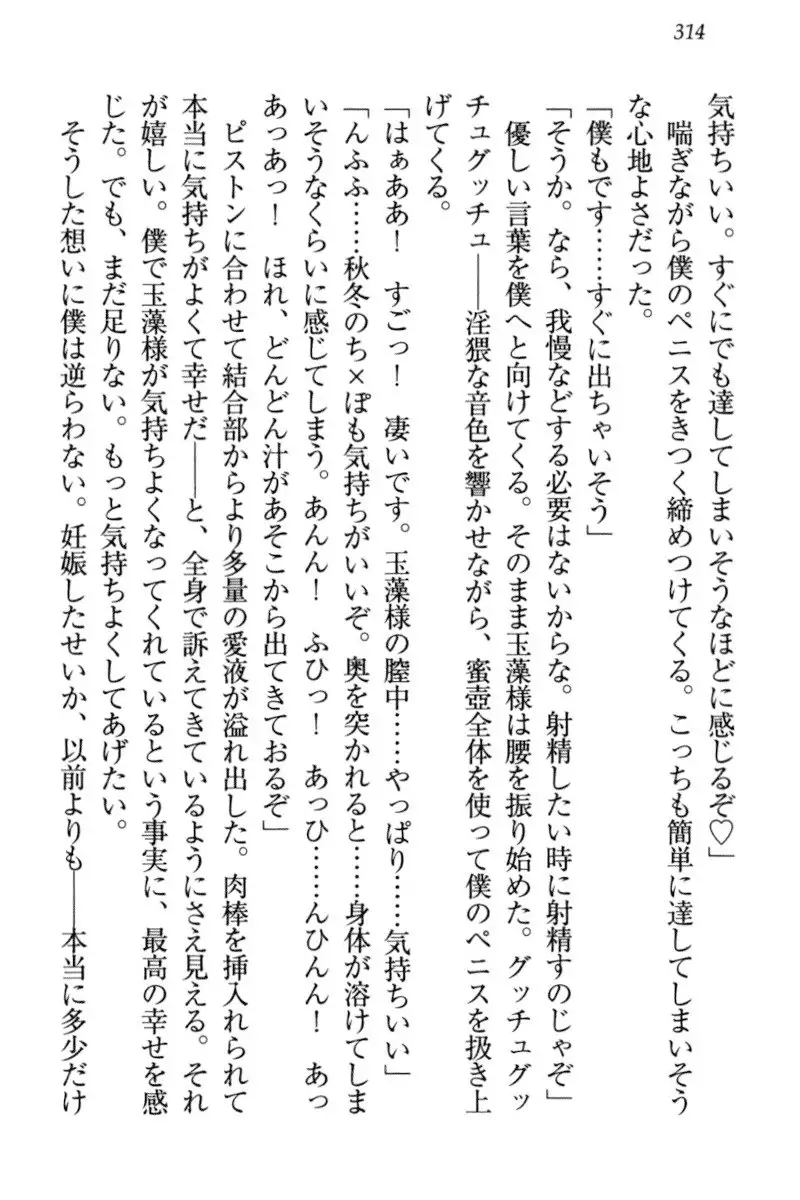 314
気持ちいい。すぐにでも達してしまいそうなほどに感じるぞ♡」
喘ぎながら僕のペニスをきつく締めつけてくる。こっちも簡単に達してしまいそう
な心地よさだった。
「僕もです……すぐに出ちゃいそう」
「そうか。なら、我慢などする必要はないからな。射精したい時に射精すのじゃぞ」
優しい言葉を僕へと向けてくる。そのまま玉藻様は腰を振り始めた。グッチュグッ
チュグッチュ――淫猥な音色を響かせながら、蜜壺全体を使って僕のペニスを扱き上
げてくる。
「はぁああ！　すごっ！　凄いです。玉藻様の膣中……やっぱり……気持ちいい」
「んふふ……秋冬のち×ぽも気持ちがいいぞ。奥を突かれると……身体が溶けてしま
いそうなくらいに感じてしまう。あんん！　ふひっ！　あっひ……んひんん！　あっ
あっあっ！　ほれ、どんどん汁があそこから出てきておるぞ」
ピストンに合わせて結合部からより多量の愛液が溢れ出した。肉棒を挿入れられて
本当に気持ちがよくて幸せだ――と、全身で訴えてきているようにさえ見える。それ
が嬉しい。僕で玉藻様が気持ちよくなってくれているという事実に、最高の幸せを感
じた。でも、まだ足りない。もっと気持ちよくしてあげたい。
そうした想いに僕は逆らわない。妊娠したせいか、以前よりも――本当に多少だけ